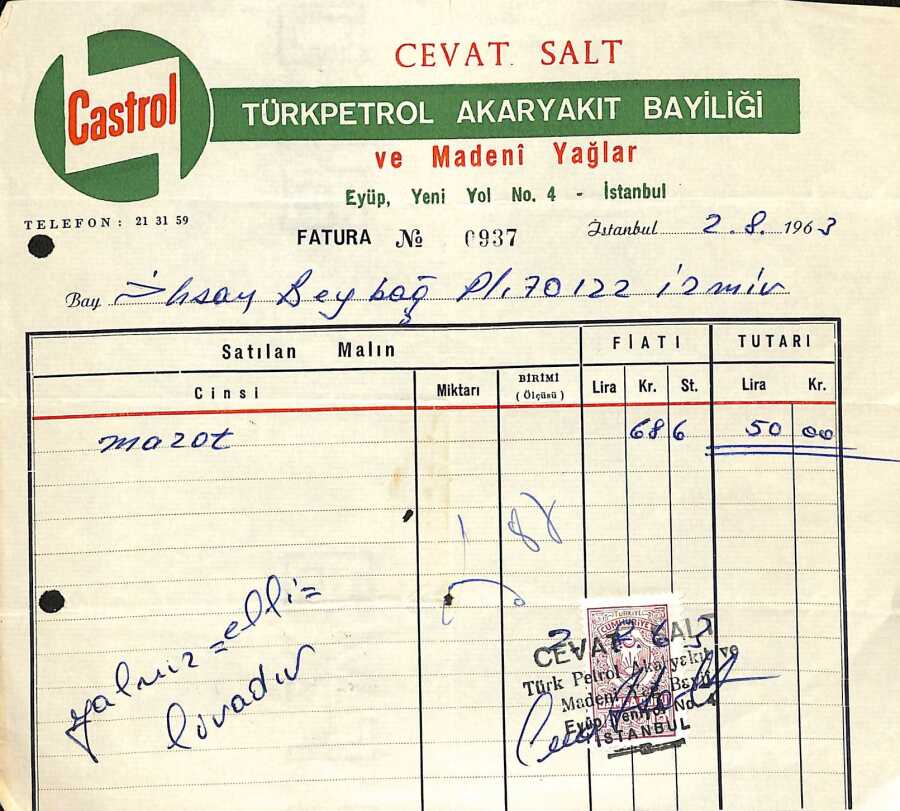 Castrol
CEVAT SALT
TÜRKPETROL AKARYAKIT BAYİLİĞİ
ve Madenî Yağlar
Eyüp, Yeni Yol No. 4 - İstanbul
TELEFON : 21 31 59
FATURA № 0937
İstanbul 2.8.1963
Bay İhsay Beybağ Pl. 70122 izmir
Satılan Malın FİATI TUTARI
Cinsi Miktarı BİRİMİ (Ölçüsü) Lira Kr. St. Lira Kr.
mazot 68 6 50 00
yalnız =elli=
liradır
TÜRKİYE
CUMHURİYETİ
2 8 63
CEVAT SALT
Türk Petrol Akaryakıt ve
Madeni Yağ Bayii
Eyüp Yeniyol No. 4
İSTANBUL